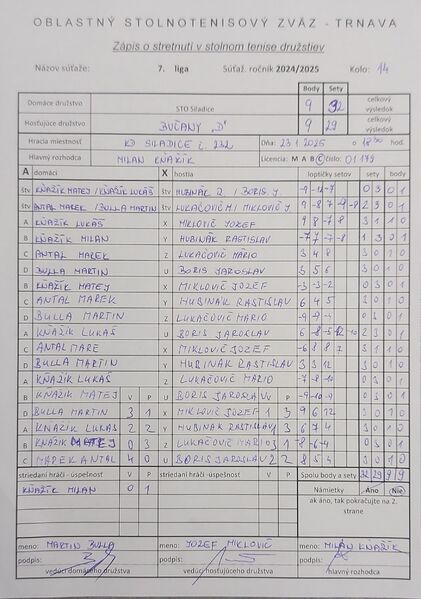 OBLASTNÝ STOLNOTENISOVÝ ZVÄZ - TRNAVA
Zápis o stretnutí v stolnom tenise družstiev
Názov súťaže: 7. liga Súťaž. ročník 2024/2025 Kolo: 14
Body Sety
Domáce družstvo STO Siladice 9 32 celkový výsledok
Hosťujúce družstvo BUČANY "D" 9 29 celkový výsledok
Hracia miestnosť KD SILADICE č. 232 Dňa: 23.1.2025 o 18:30 hod.
Hlavný rozhodca MILAN KŇAŽÍK Licencia: M A B C číslo: 01179
A domáci X hostia loptičky setov sety body
štv KŇAŽÍK MATEJ / KŇAŽÍK LUKÁŠ štv HUBINÁK R / BORIS J. 0 3 0 1
štv ANTAL MAREK / BULLA MARTIN štv LUKAČOVIČ M / MIKLOVIČ J. 2 3 0 1
A KŇAŽÍK LUKÁŠ X MIKLOVIČ JOZEF 9 8 -7 8 3 1 1 0
B KŇAŽÍK MILAN Y HUBINÁK RASTISLAV 1 3 0 1
C ANTAL MAREK Z LUKAČOVIČ MÁRIO 3 4 8 3 0 1 0
D BULLA MARTIN U BORIS JAROSLAV 3 5 6 3 0 1 0
B KŇAŽÍK MATEJ X MIKLOVIČ JOZEF -3 -3 -2 0 3 0 1
C ANTAL MAREK Y HUBINÁK RASTISLAV 6 4 5 3 0 1 0
D BULLA MARTIN Z LUKAČOVIČ MÁRIO 0 3 0 1
A KŇAŽÍK LUKÁŠ U BORIS JAROSLAV 2 3 0 1
C ANTAL MAREK X MIKLOVIČ JOZEF -6 8 8 7 3 1 1 0
D BULLA MARTIN Y HUBINÁK RASTISLAV 3 3 12 3 0 1 0
A KŇAŽÍK LUKÁŠ Z LUKAČOVIČ MÁRIO -7 -8 -10 0 3 0 1
B KŇAŽÍK MATEJ V P U BORIS JAROSLAV V P -9 -10 -9 0 3 0 1
D BULLA MARTIN 3 1 X MIKLOVIČ JOZEF 1 3 9 6 12 3 0 1 0
A KŇAŽÍK LUKÁŠ 2 2 Y HUBINÁK RASTISLAV 1 3 6 7 4 3 0 1 0
B KŇAŽÍK MATEJ 0 3 Z LUKAČOVIČ MÁRIO 3 1 -8 -6 -4 0 3 0 1
C MAREK ANTAL 4 0 U BORIS JAROSLAV 2 2 8 5 4 3 0 1 0
striedaní hráči - úspešnosť V P striedaní hráči - úspešnosť V P Spolu body a sety 32 29 9 9
KŇAŽÍK MILAN 0 1 Námietky Áno Nie
ak áno, tak pokračujte na 2. strane
meno: MARTIN BULLA meno: JOZEF MIKLOVIČ meno: MILAN KŇAŽÍK
podpis: podpis: podpis:
vedúci domáceho družstva vedúci hosťujúceho družstva hlavný rozhodca